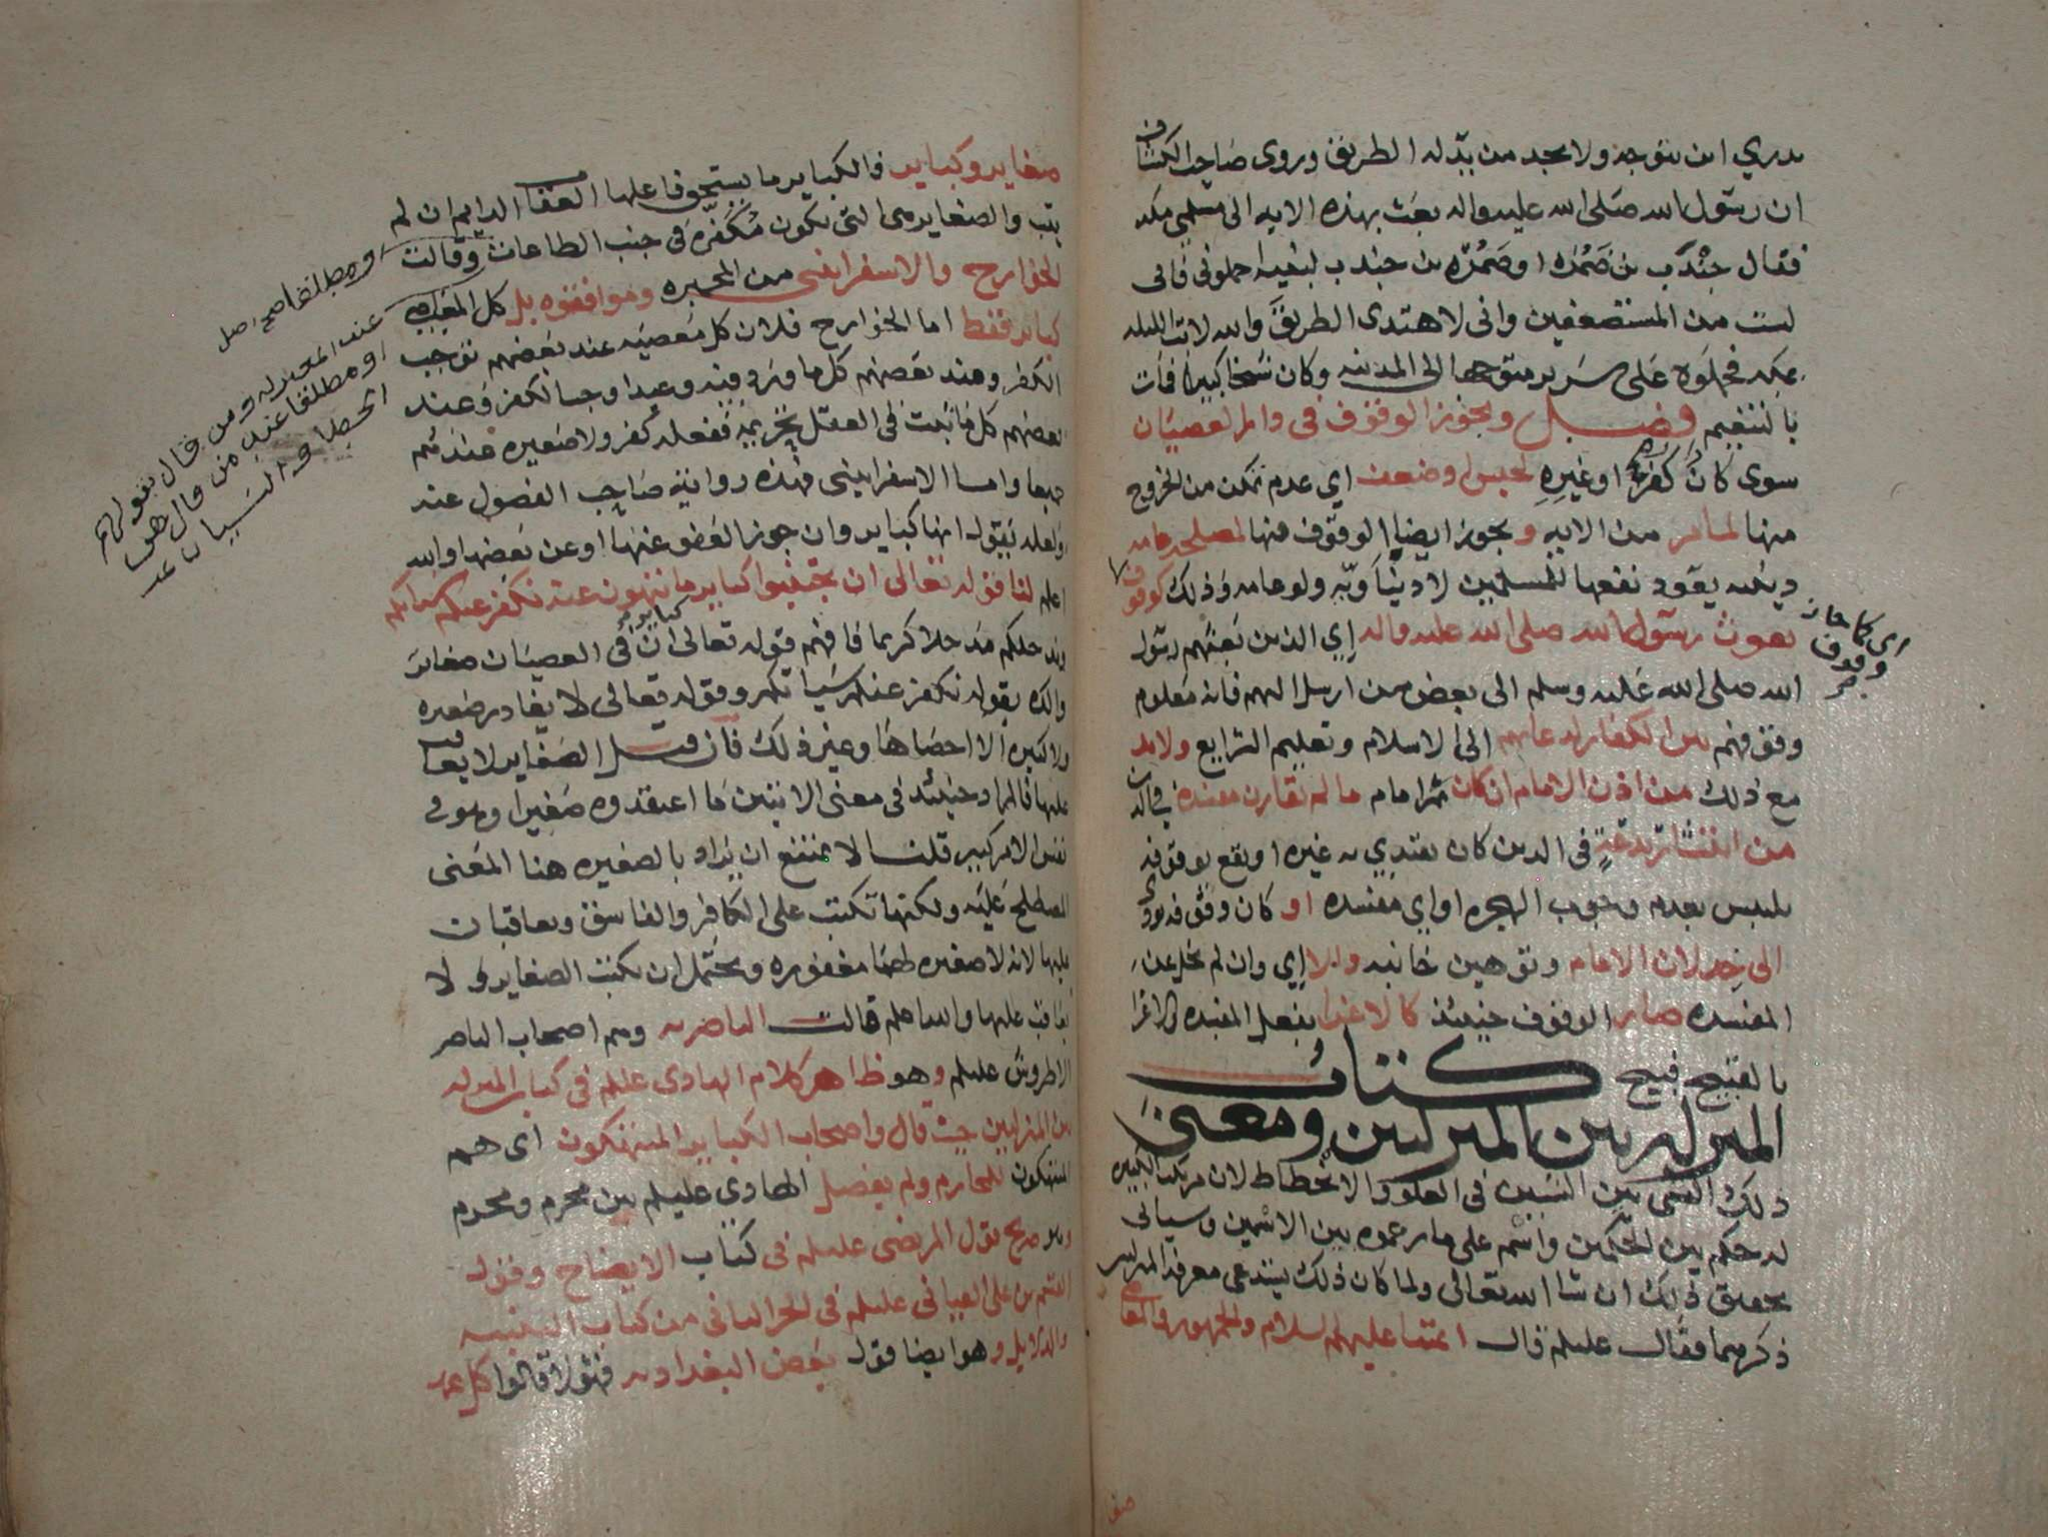 يدري اين يتوجه ولا يجد من يدّله الطريق وروى صاحب الكشاف
ان رسول الله صلى الله عليه واله بعث بهذه الايه الى مسلمي مكه
فقال جندب بن ضمره او ضمره بن جندب لبنيه احملوني فاني
لست من المستضعفين واني لاهتدى الطريق والله لا ابت الليله
بمكه فحملوه على سرير متوجها الى المدينه وكان شيخا كبيرا فمات
بالتنعيم فصل ويجوز الوقوف في دار العصيان
سوى كان كفرا او غيره لحبس او ضعف اي عدم تمكن من الخروج
منها لما مر من الايه ويجوز ايضا الوقوف فيها لمصلحه عامه
دينيه يعود نفعها للمسلمين لا دنياويه ولو عامه وذلك كوقوف
بعوث رسول الله صلى الله عليه واله اي الذين بعثهم رسول
الله صلى الله عليه وسلم الى بعض من ارسل اليهم فانه معلوم
وقوفهم بين الكفار لدعائهم الى الاسلام وتعليم الشرايع ولا بد
مع ذلك من اذن الامام ان كان ثم امام ما لم تقارن مفسده في الدين
من انتشار بدعة في الدين كان يقتدي به غيره او يقع بوقوفه
تلبس بعدم وجوب الهجره او اي مفسده او كان وقوفه يودي
الى خذلان الامام وتوهين جانبه والا اي وان لم يخل عن
المفسده صار الوقوف حينئذ كالاغرا بفعل المفسده والاغرا
بالقبيح قبيح كتاب
المنزله بين المنزلتين ومعنى
ذلك الشي بين الشيين في العلو والانحطاط لان مرتكب الكبيره
له حكم بين الحكمين واسم على ما زعموه بين الاسمين وسياتي
تحقيق ذلك ان شا الله تعالى ولما كان ذلك يستدعي معرفة المنزلتين
ذكرهما فقال عليلم قال ائمتنا عليهم السلام والجمهور والمعاصي
اي كما جاز
وقوف
صغا
صغاير وكباير فالكباير ما يستحق فاعلها العقاب الدايم ان لم
يتب والصغاير هي التي تكون مكفّره في جنب الطاعات وقالت
الخوارج والاسفرايني من المجبره وموافقوه بل كل المعاصي
كباير فقط اما الخوارج فلان كل معصيه عند بعضهم توجب
الكفر وعند بعضهم كل ما ورد فيه وعيد اوجب الكفر وعند
بعضهم كل ما ثبت في العقل تحريمه ففعله كفر ولا صغيره عندهم
جميعا واما الاسفرايني فهذه رواية صاحب الفصول عنه
ولعله يقول انها كباير وان جوز العفو عنها او عن بعضها والله
اعلم لنا قوله تعالى ان تجتنبوا كباير ما تنهون عنه نكفر عنكم سياتكم
وندخلكم مدخلا كريما فافهم قوله تعالى ان في العصيان صغاير
كباير
واكده بقوله نكفر عنكم سياتكم وقوله تعالى لا يغادر صغيره
ولا كبيره الا احصاها وغير ذلك فان قيل الصغاير لا يعاقب
عليها فالمراد حينئذ في معنى الايتين ما اعتقدوه صغيرا وهو في
نفس الامر كبير قلنا لا يمتنع ان يراد بالصغيره هنا المعنى
المصطلح عليه ولكنها تكتب على الكافر والفاسق ويعاقبان
عليها لانه لا صغيره لهما مغفوره ويحتمل ان يكتب الصغاير ولا
يعاقب عليها والله اعلم قالت الناصريه وهم اصحاب الناصر
الاطروش عليلم وهو ظاهر كلام الهادي عليلم في كتاب المنزله
بين المنزلتين حيث قال واصحاب الكباير المنتهكون اي هم
المنتهكون للمحارم ولم يفصل الهادي عليلم بين محرم ومحرم
وهو صريح قول المرتضى عليلم في كتاب الايضاح وقول
القسم بن علي العياني عليلم في الجز الثاني من كتاب التنبيه
والدلايل وهو ايضا قول بعض البغداديه فهولا قالوا كل عمد
ومطلقا صح اصل
عند المعتزله ومن قال بقولهم
او مطلقا عند من قال